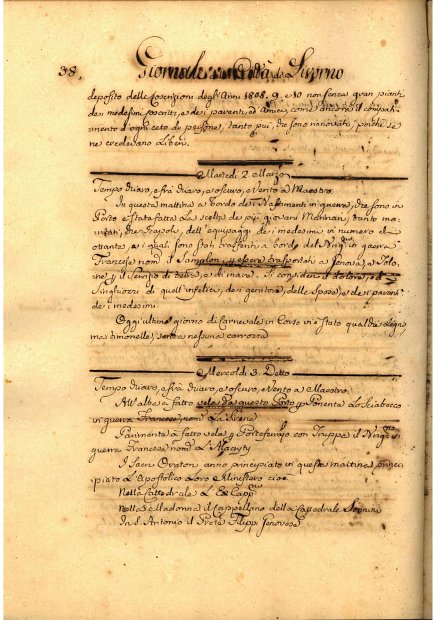 38. Giornale della Città di Livorno
deposito delle Coscrizioni degli Anni 1808. 9. e 10 non senza gran pianti
de i medesimi coscritti, e de i parenti, ed Amici, come ancora il compati-
mento d'ogni ceto di persone, tanto più, che sono rinnovati, poiché se
ne credevano Liberi.
Martedì 2. Marzo
Tempo chiaro, e frà chiaro, e oscuro, e Vento a Maestro.
In questa mattina a bordo de i Bastimenti in guerra, che sono in
Porto è stata fatta La scelta de più giovani Marinari, tanto ma-
ritati, che scapoli, dell'equipaggi de i medesimi in numero di
ottanta, e i quali sono stati trasferiti a bordo del in guerra
Francese nom.° il Sampion, essere trasportati a Genova, e Tolo-
ne, il Servizio di terra, e di mare. Si consideri il dolore, ed i
Singhiozzi di quell'infelici, de i genitori, delle Spose, e de i parenti
de i medesimi.
Oggi ultimo giorno di Carnevale in Corso vi è stato qualche
ma timonelle, senza nessuna carrozza
Mercoldì 3. Detto
Tempo chiaro, e frà chiaro, e oscuro, e Vento a Maestro.
All'alba à fatto vela da questo Porto Ponente Lo Sciabecco
in guerra Francese nom.° La Sirene
Parimente à fatto vela Portoferraio con Truppa il
guerra Francese nom.°
I Sacri Oratori anno principiato in questa mattina princi-
piato L'Apostolico Loro Ministero cioè
Nella Cattedrale L'Ex Capp.
Nella Madonna il Cappellano della Cattedrale
In S. Antonio il Prete Filippi Genovese